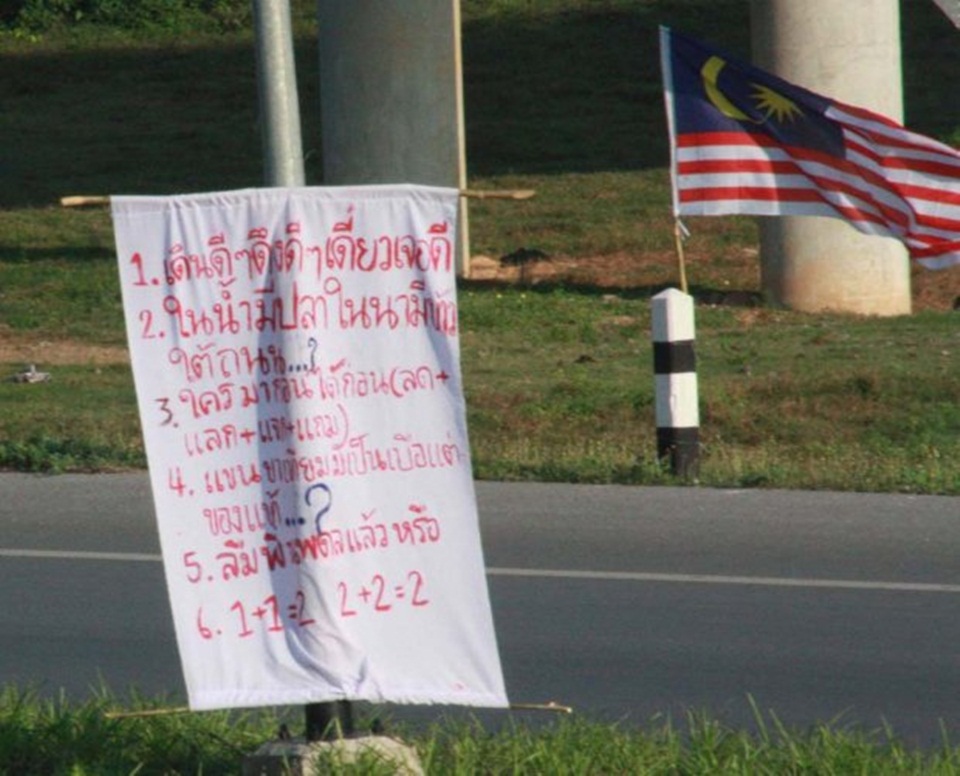 1. เดินดีๆดึงดีๆเดี๋ยวเจอดี
2. ในน้ำมีปลาในนามีข้าว
ใต้ถนน...?
3. ใครมาก่อนได้ก่อน(ลด+
แลก+แจก+แถม)
4. แขนขาเทียมมีเป็นเบือแต่
ของแท้...?
5. ลืมพี่ แล้วหรือ
6. 1+1=2 2+2=2